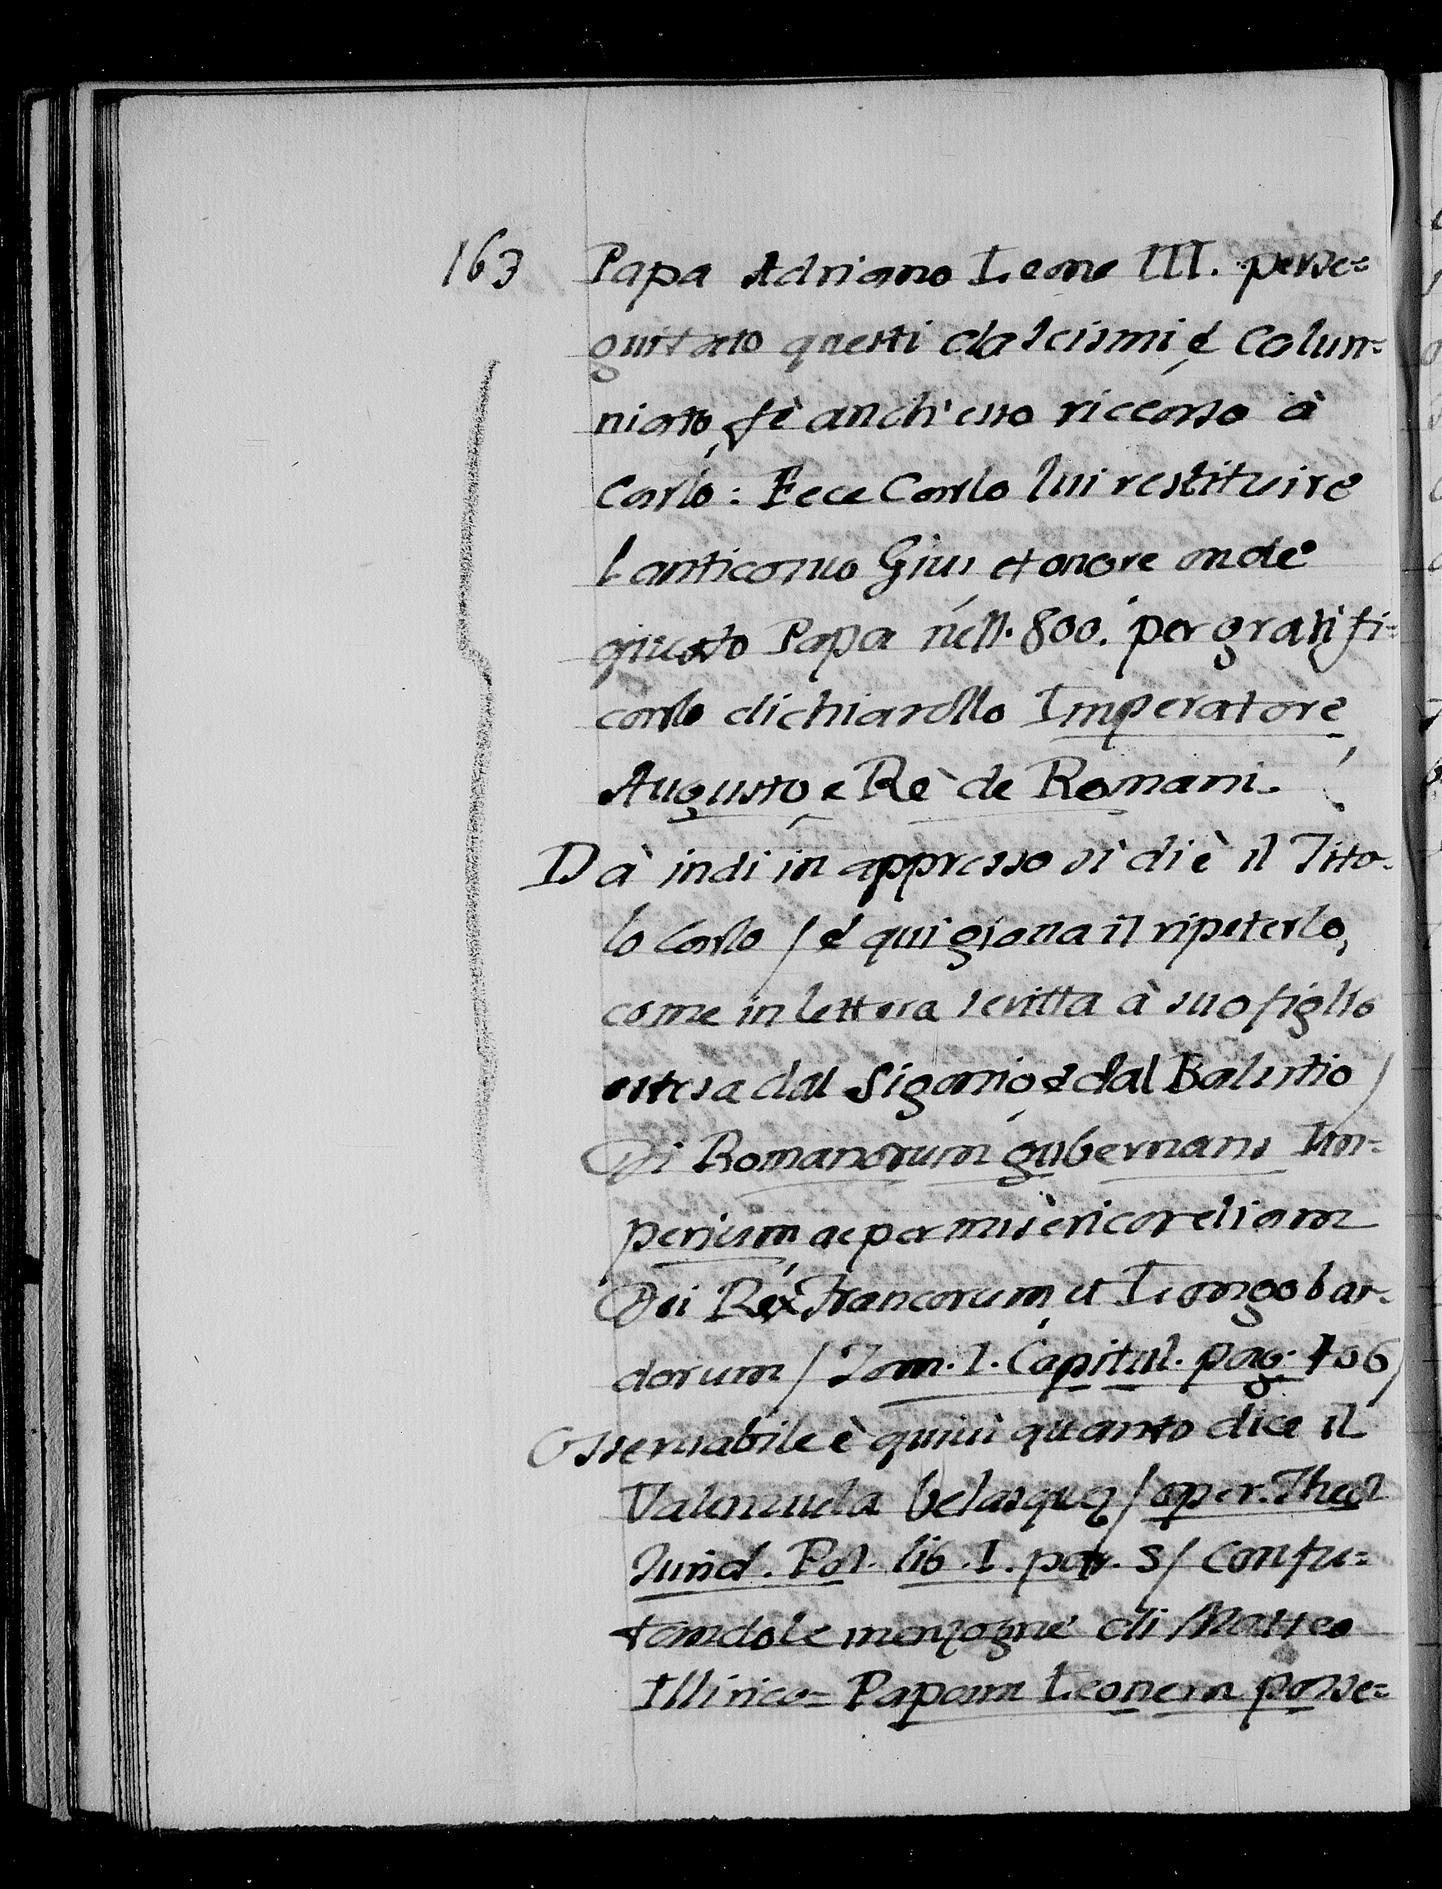 163 Papa Adriano Leone III. perse=
guitato questi da scismi, é Colun=
niato, fè anch'esso ricorso à
Carlo: Fece Carlo lui restituire
l antico suo Gius, et onore onde
questo Papa nell. 800. per gratifi=
carlo dichiarollo Imperatore,
Augusto, e Rè de Romani.
Dà indi in appresso si diè il Tito-
lo Carlo / é qui gioua il ripeterlo,
come in lettera scritta à suo figlio
estesa dal Sigonio, e dal Balustio /
Di Romanorum gubernans Im-
perium, ac per misericordiam
Dei Rex Francorum, et Longobar-
dorum / Tom. I. Capitul. pag. 706 /
Osseruabile è quiui quanto dice il
Valenzuela Velasquez / oper. Theol
Jurid. Pol. lib. I. par. 3 / Confu=
tando le menzogne di Matteo
Illirico = Papam Leonem posse=